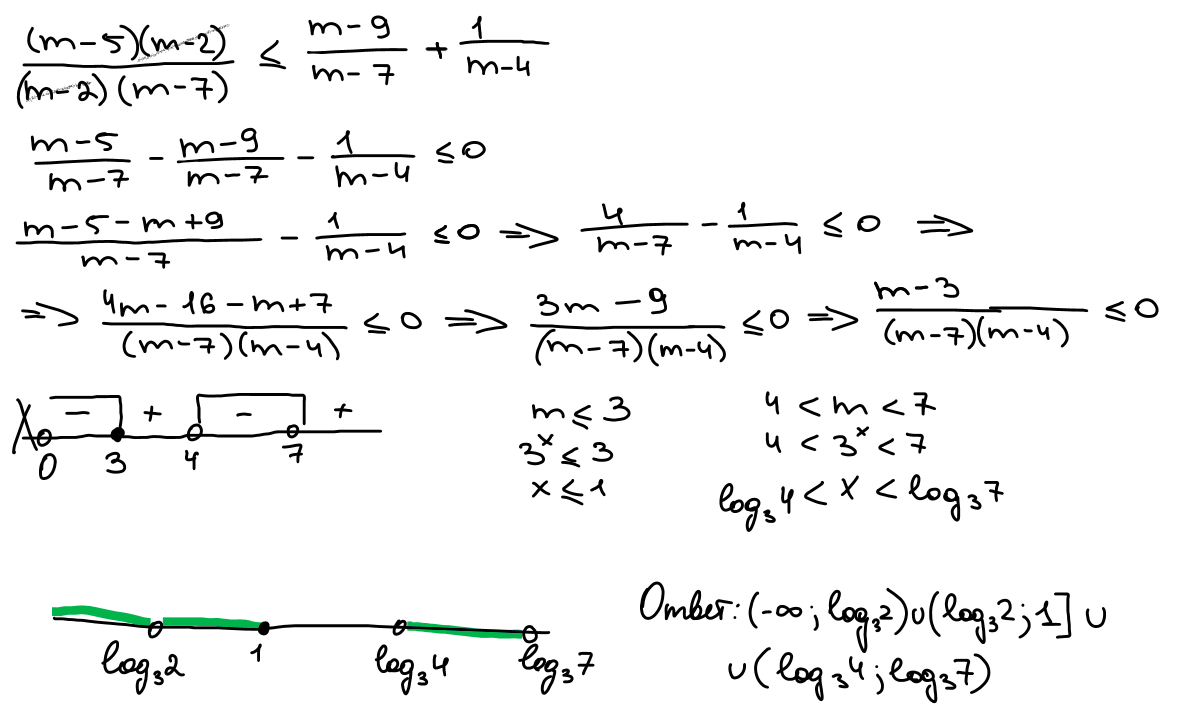 (m-5)(m-2)/(m-2)(m-7) ≤ m-9/m-7 + 1/m-4
m-5/m-7 - m-9/m-7 - 1/m-4 ≤ 0
m-5-m+9/m-7 - 1/m-4 ≤ 0 => 4/m-7 - 1/m-4 ≤ 0 =>
=> 4m-16-m+7/(m-7)(m-4) ≤ 0 => 3m-9/(m-7)(m-4) ≤ 0 => m-3/(m-7)(m-4) ≤ 0
- + - +
0 3 4 7
m ≤ 3
3^x ≤ 3
x ≤ 1
4 < m < 7
4 < 3^x < 7
log₃4 < x < log₃7
log₃2 1 log₃4 log₃7
Ответ: (-∞; log₃2)∪(log₃2; 1] ∪
∪(log₃4; log₃7)